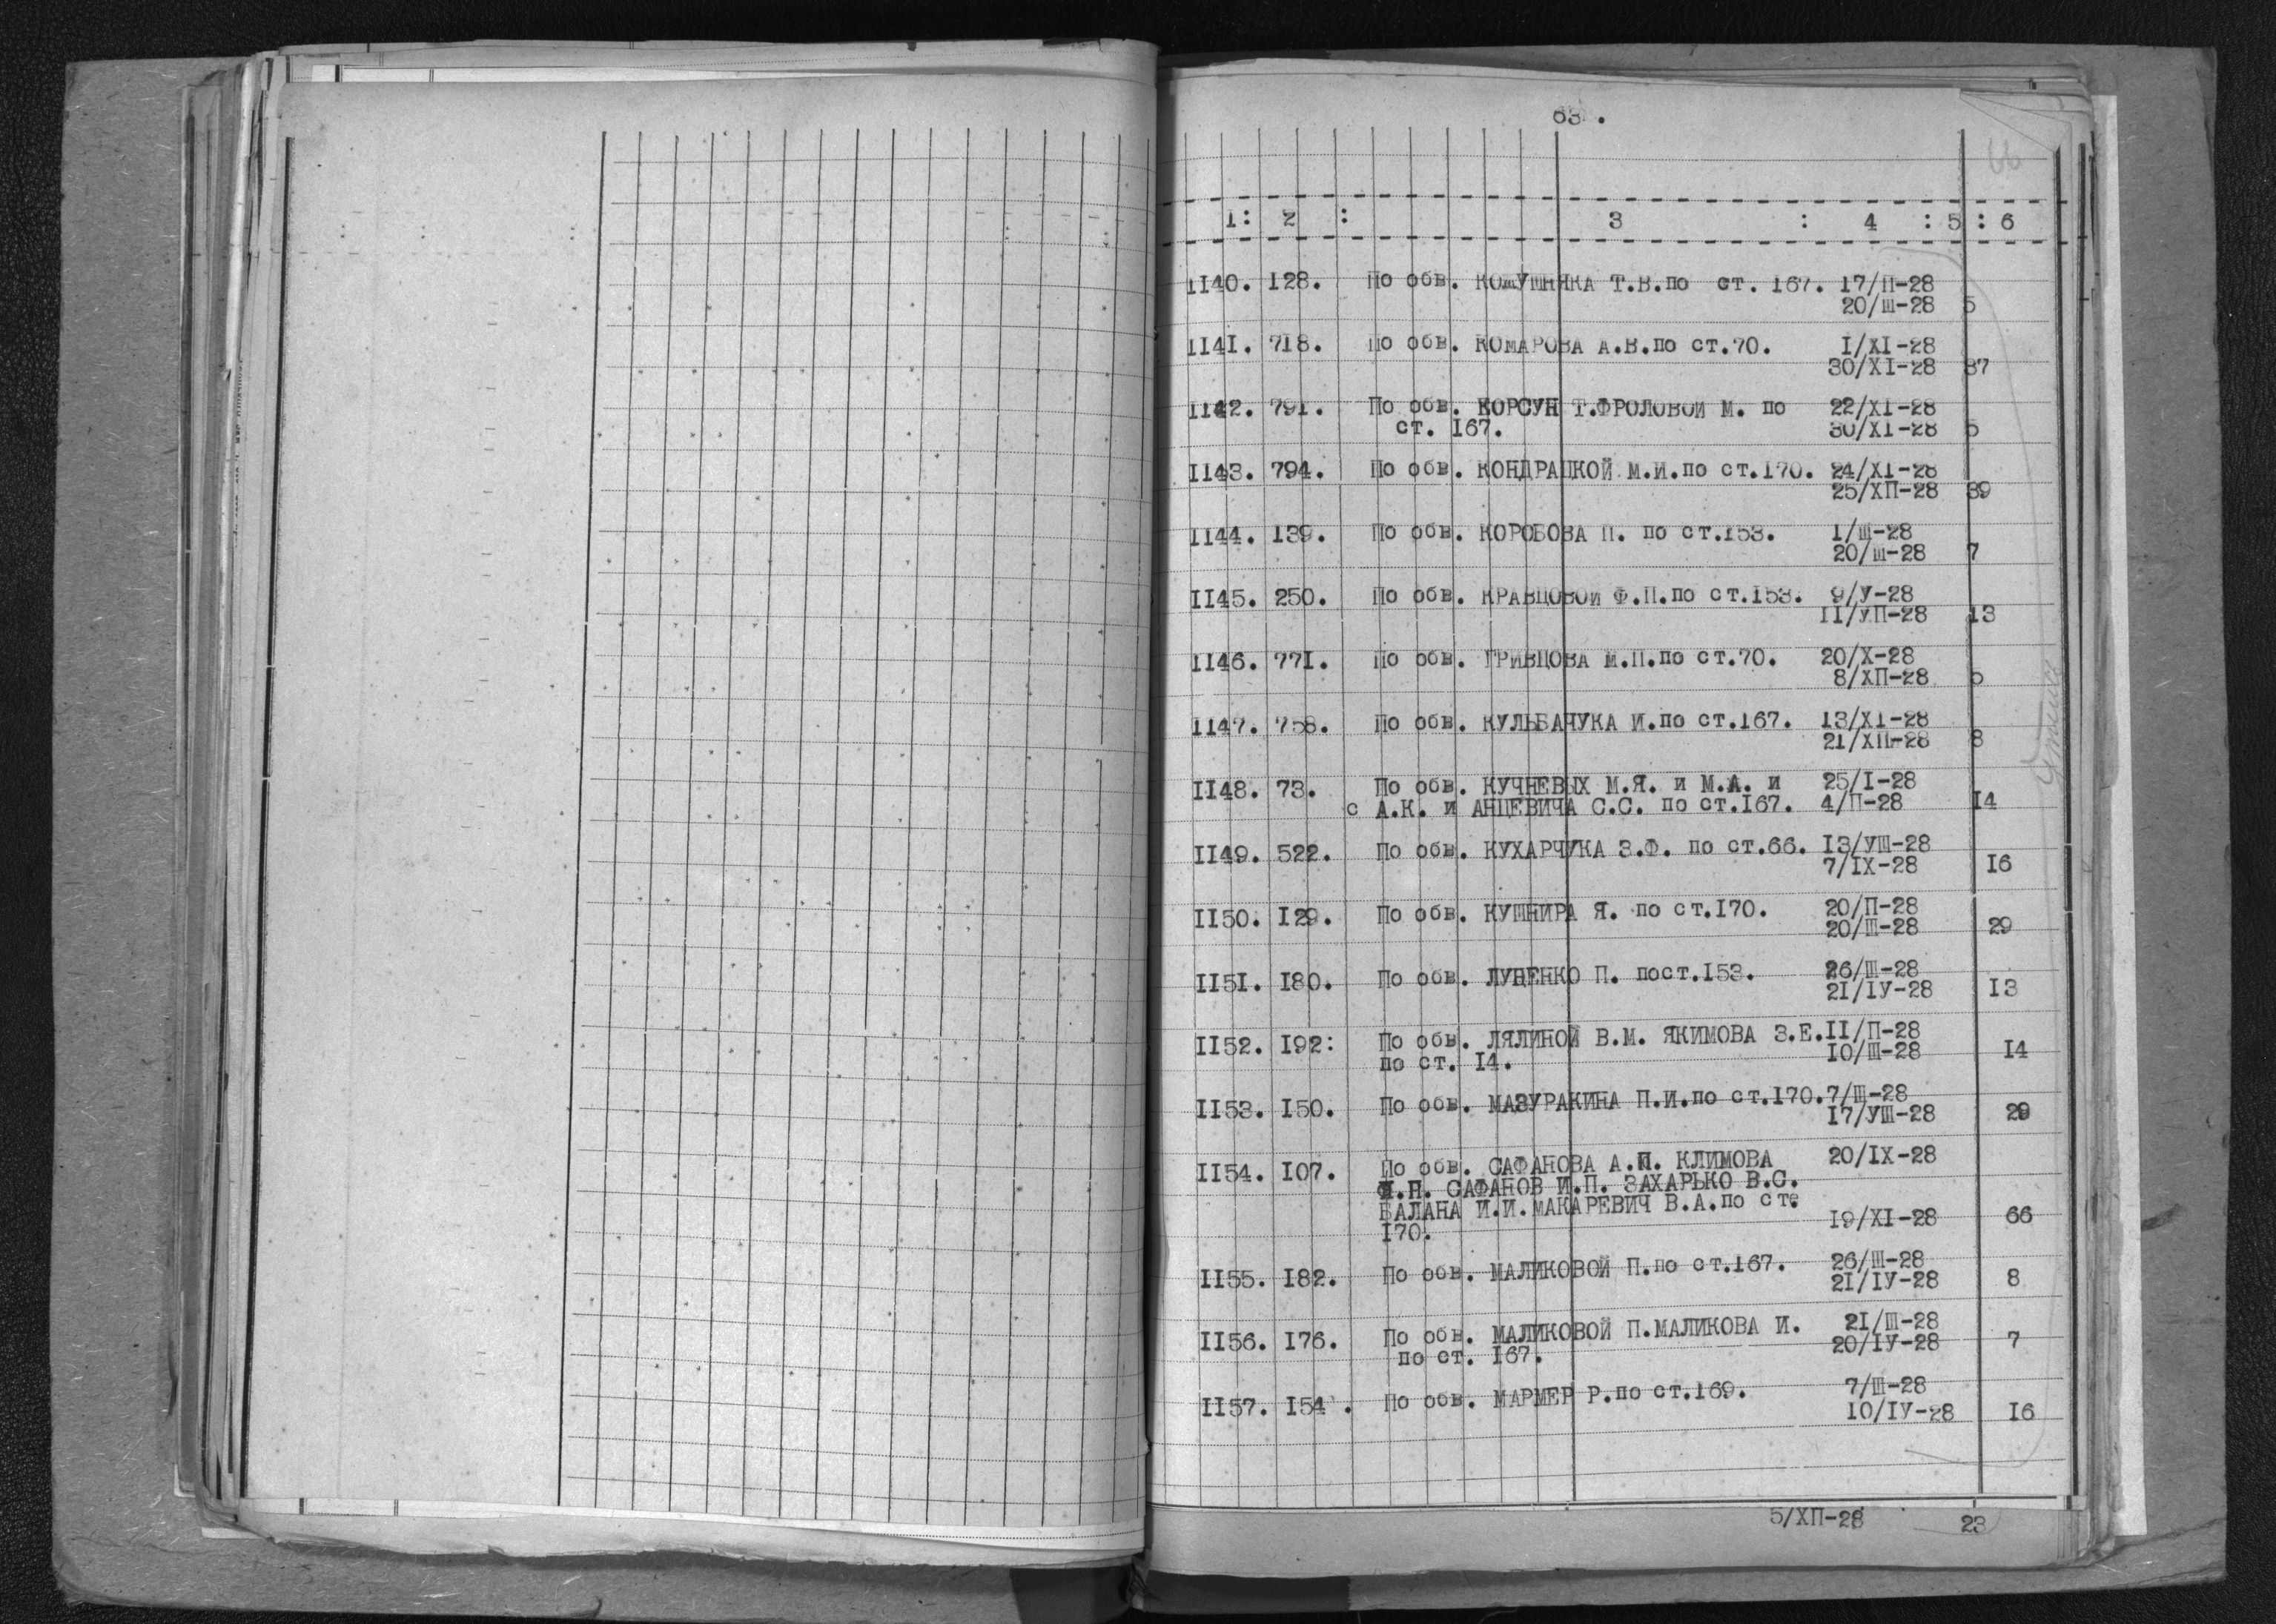 63.
66
1: 2 : 3 : 4 : 5 : 6
1140. 128. По обв. КОШУШНЯКА Т.В.по ст. 167. 17/П-28
20/Ш-28 5
1141. 718. По обв. КОМАРОВА А.В.по ст.70. I/XI-28
30/XI-28 37
1142. 791. По обв. КОРСУН Т.ФРОЛОВОЙ М. по 22/XI-28
ст. 167. 30/XI-28 5
1143. 794. По обв. КОНДРАЦКОЙ М.И.по ст.170. 24/XI-28
25/ХП-28 39
1144. 139. По обв. КОРОБОВА П. по ст.153. 1/Ш-28
20/Ш-28 7
1145. 250. По обв. КРАВЦОВОЙ Ф.П.по ст.153. 9/У-28
II/УП-28 13
1146. 771. По обв. ГРИВЦОВА М.П.по ст.70. 20/Х-28
8/ХП-28 5
1147. 758. По обв. КУЛЬБАЧУКА И.по ст.167. 13/XI-28
21/ХП-28 8
1148. 73. По обв. КУЧНЕВЫХ М.Я. и М.А. и 25/I-28
с А.К. и АНЦЕВИЧА С.С. по ст.167. 4/П-28 14
1149. 522. По обв. КУХАРЧУКА З.Ф. по ст.66. 13/УШ-28
7/IX-28 16
1150. 129. По обв. КУШНИРА Я. по ст.170. 20/П-28
20/Ш-28 29
1151. 180. По обв. ЛУЦЕНКО П. пост.153. 26/Ш-28
21/IУ-28 13
1152. 192: По обв. ЛЯЛИНОЙ В.М. ЯКИМОВА З.Е.II/П-28
по ст. 14. 10/Ш-28 14
1153. 150. По обв. МАЗУРАКИНА П.И.по ст.170.7/Ш-28
17/УШ-28 29
1154. 107. По обв. САФАНОВА А.П. КЛИМОВА 20/IX-28
Ф.П. САФАНОВ И.П. ЗАХАРЬКО В.С.
БАЛАНА И.И.МАКАРЕВИЧ В.А.по сте
170. 19/XI-28 66
1155. 182. По обв. МАЛИКОВОЙ П.по ст.167. 26/Ш-28
21/IУ-28 8
1156. 176. По обв. МАЛИКОВОЙ П.МАЛИКОВА И. 21/Ш-28
по ст. 167. 20/IУ-28 7
1157. 154 . По обв. МАРМЕР Р.по ст.169. 7/Ш-28
10/IУ-28 16
5/ХП-28 23